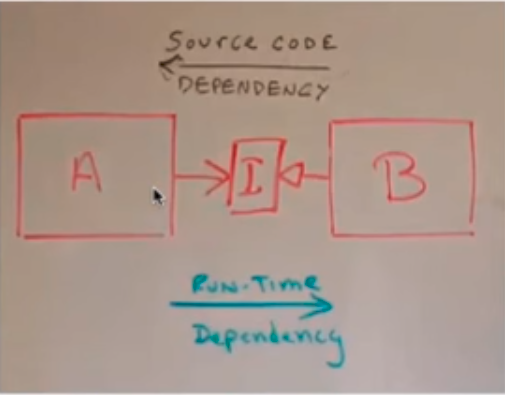 Source code
DEPENDENCY
A
I
B
Run-Time
Dependency